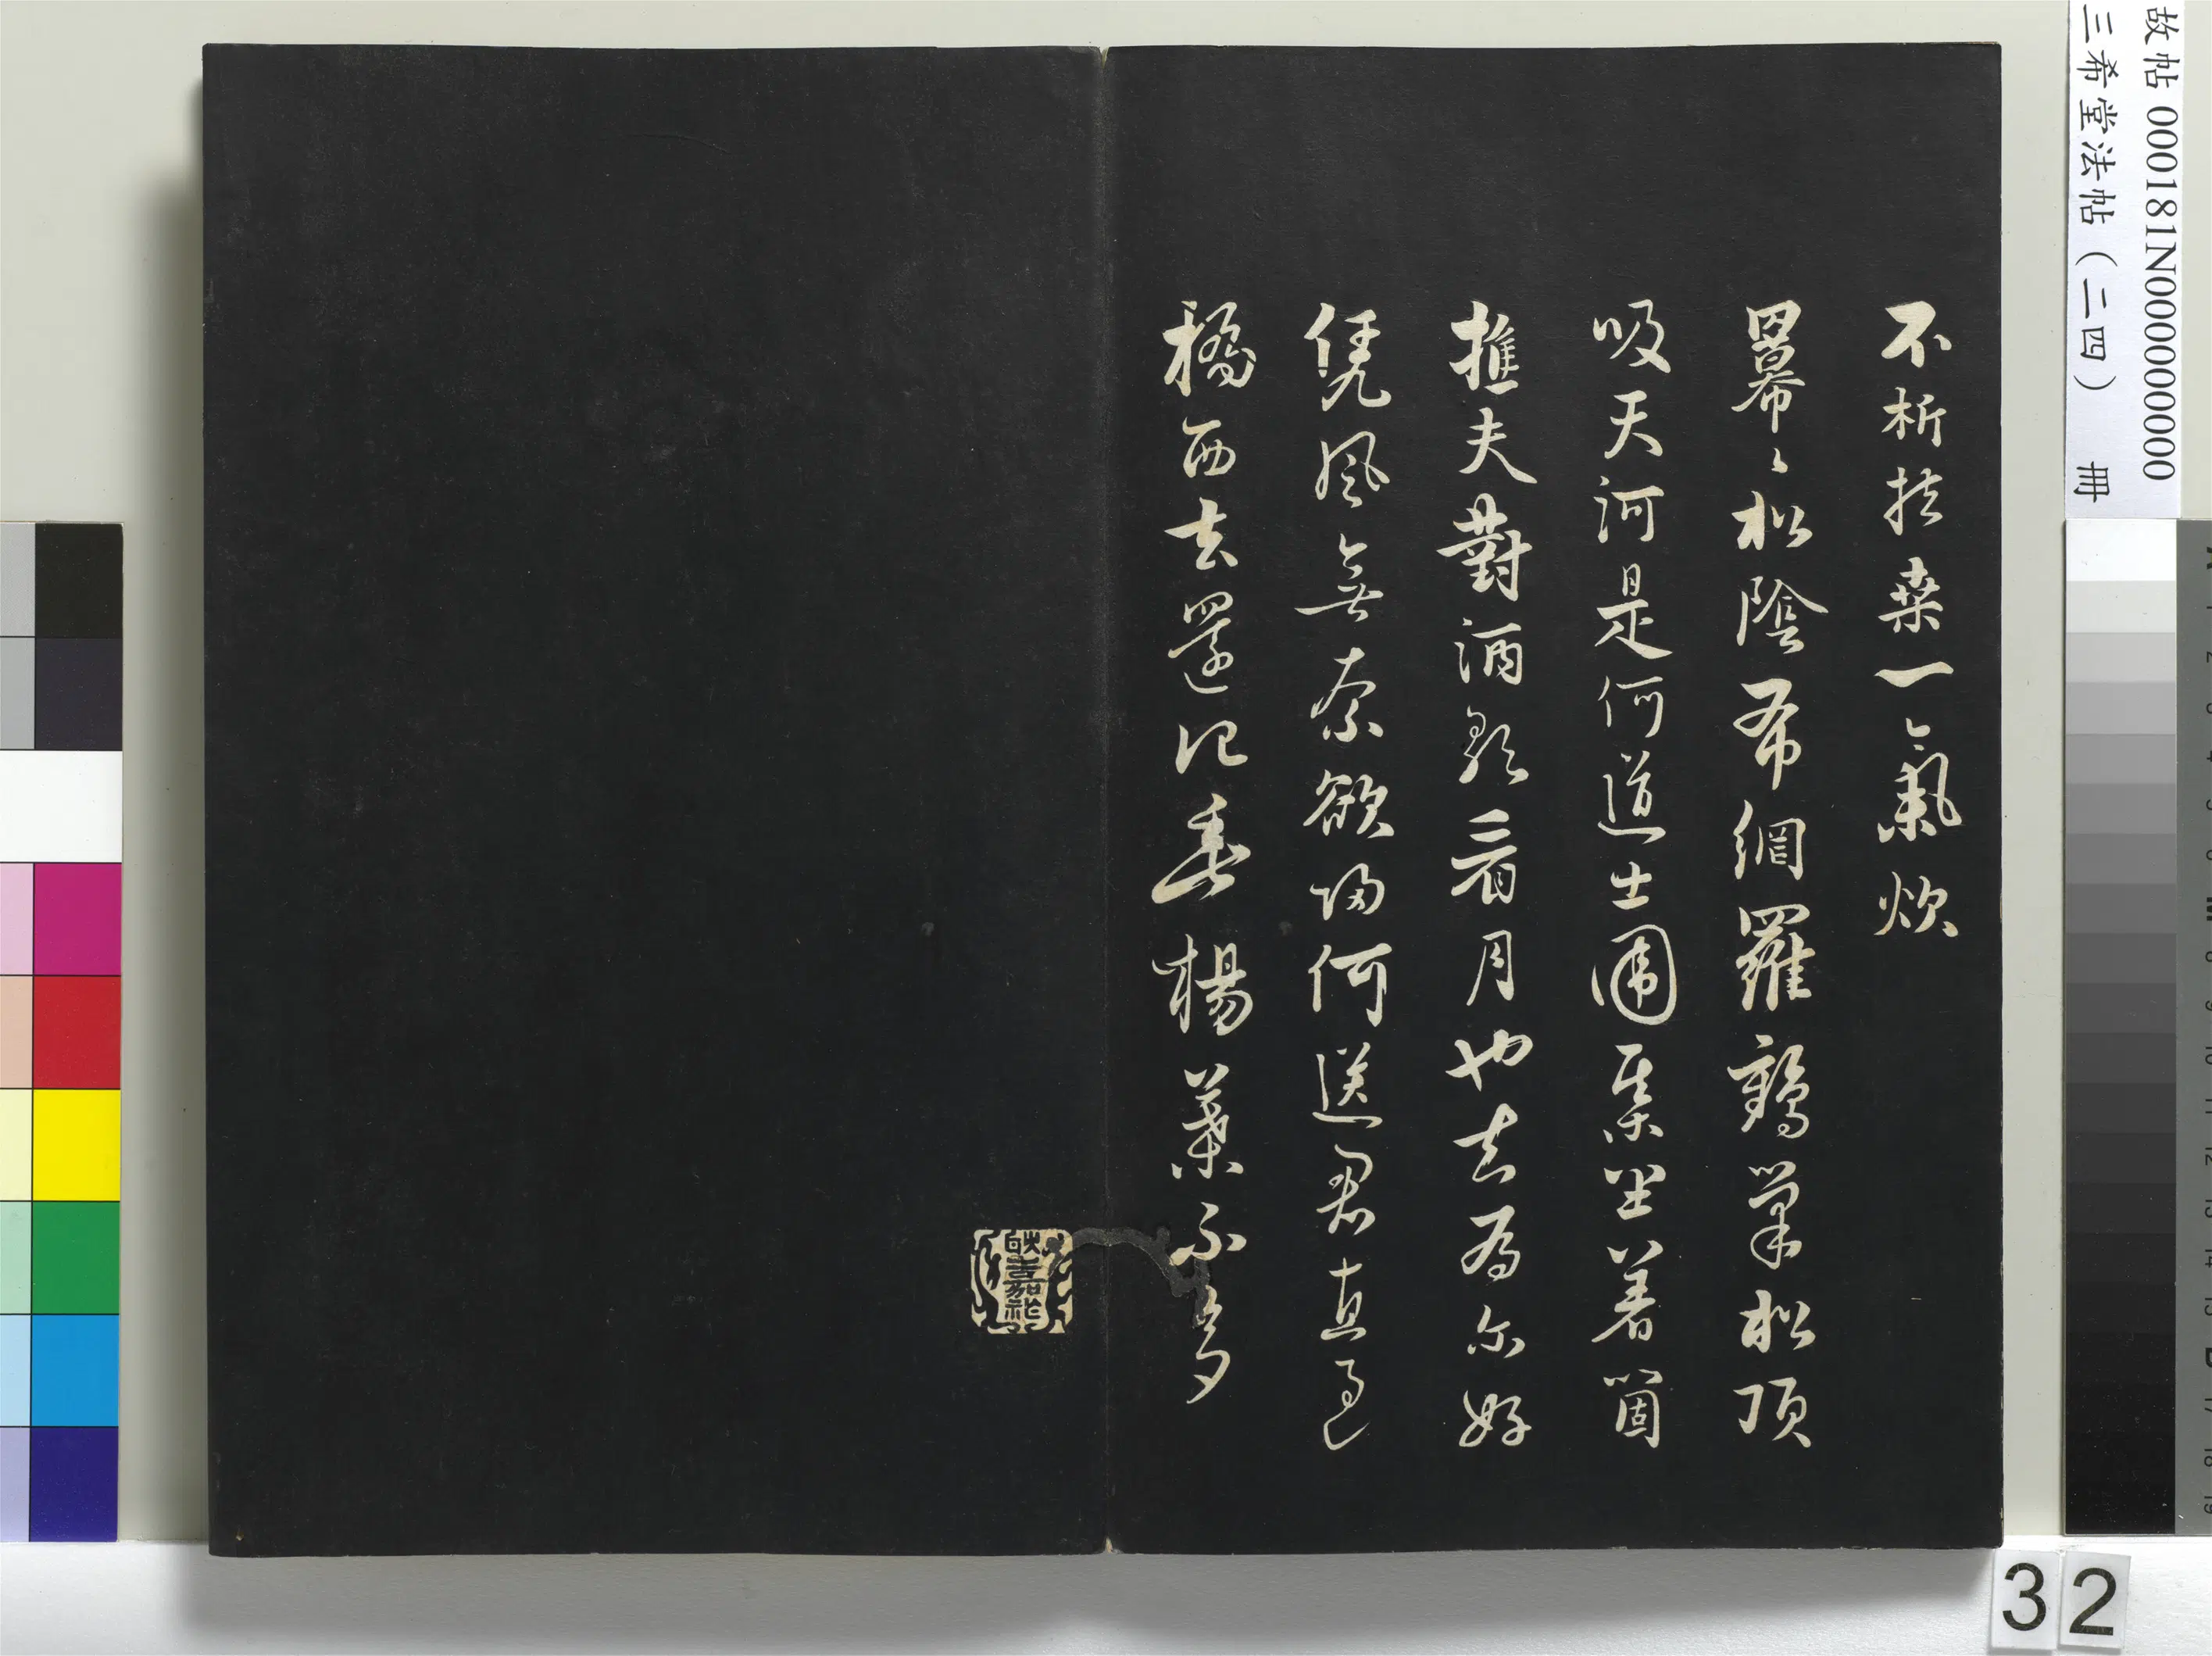 不析扶桑一氣炊
冪〻松陰布網羅鶴巢松頂
吸天河是何道士圍棊坐著箇
樵夫對酒歌看月也去為尔好
凭風無奈欲歸何送君直過
橋西去還記垂楊葉不多
故帖 000181N000000000
三希堂法帖（二四） 冊
32